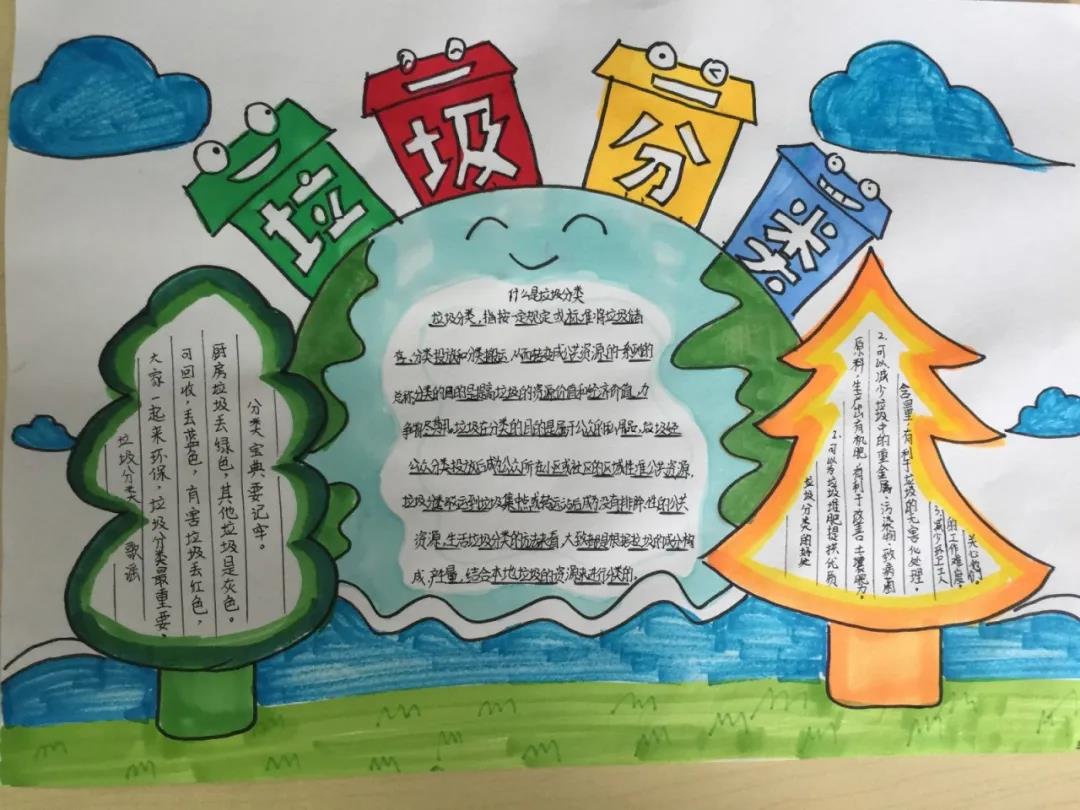 垃圾分类
什么是垃圾分类
垃圾分类,指按一定规定或标准将垃圾储
在、分类投放和分类搬运,从而转变成公共资源的一系列的
总称分类的目的是提高垃圾的资源价值和经济价值,力
争物尽其用。垃圾在分类的目的是属于公众的,垃圾经
公众分类投放后成公众所在小区或社区的区域性准公共资源,
垃圾分类驱运到垃圾集或转运站后成为没有排除性的公共
资源.生活垃圾分类的方法来看,大致都是根据垃圾的成分构
成,产量,结合本地垃圾的资源来进行分类的.
垃圾分类歌谣
大家一起来环保,垃圾分类最重要。
可回收,丢蓝色,有害垃圾丢红色,
厨房垃圾丢绿色,其他垃圾是灰色。
分类宝典要记牢。
垃圾分类的好处
1.可以为垃圾堆肥提拱优质
原料,生产出有机肥,有利于改善土壤肥力。
2.可以减少垃圾中的重金属、污染物、致病菌
含量,有利于垃圾的无害化处理。
3.减少环卫工人
的工作难度,
关心他们.